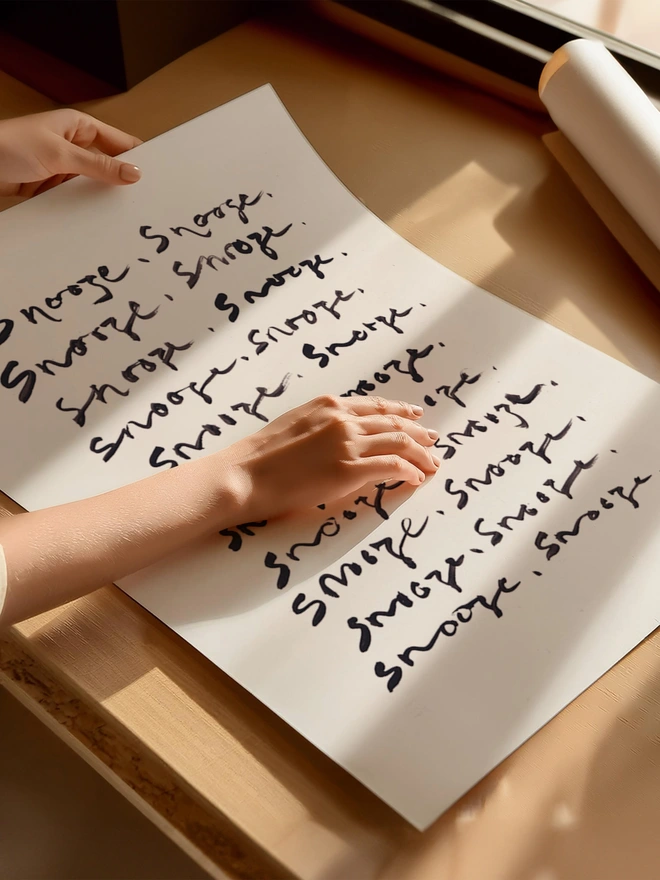 Snooze. Snooze.
Snooze. Snooze.
Snooze. Snooze.
Snooze. Snooze.
Snooze. Snooze.
Snooze. Snooze.
Snooze. Snooze.
Snooze. Snooze.
Snooze. Snooze